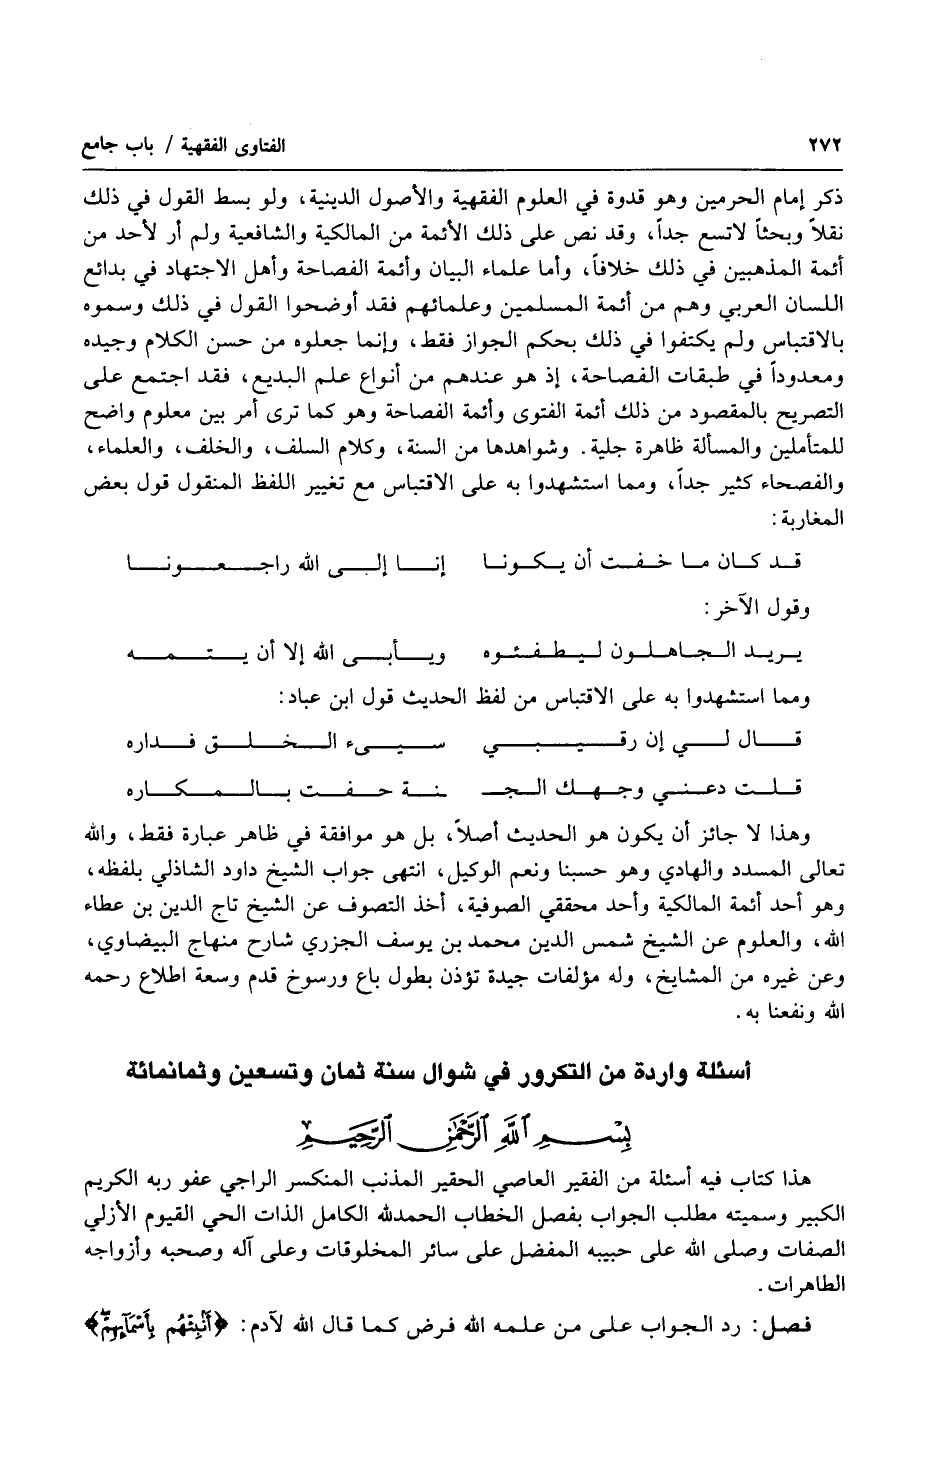 ٢٧٢ الفتاوى الفقهية / باب جامع
ذكر إمام الحرمين وهو قدوة في العلوم الفقهية والأصول الدينية، ولو بسط القول في ذلك
نقلاً وبحثاً لاتسع جداً، وقد نص على ذلك الأئمة من المالكية والشافعية ولم أر لأحد من
أئمة المذهبين في ذلك خلافاً، وأما علماء البيان وأئمة الفصاحة وأهل الاجتهاد في بدائع
اللسان العربي وهم من أئمة المسلمين وعلمائهم فقد أوضحوا القول في ذلك وسموه
بالاقتباس ولم يكتفوا في ذلك بحكم الجواز فقط، وإنما جعلوه من حسن الكلام وجيده
ومعدوداً في طبقات الفصاحة، إذ هو عندهم من أنواع علم البديع، فقد اجتمع على
التصريح بالمقصود من ذلك أئمة الفتوى وأئمة الفصاحة وهو كما ترى أمر بين معلوم واضح
للمتأملين والمسألة ظاهرة جلية. وشواهدها من السنة، وكلام السلف، والخلف، والعلماء،
والفصحاء كثير جداً، ومما استشهدوا به على الاقتباس مع تغيير اللفظ المنقول قول بعض
المغاربة:
قد كان ما خفت أن يكونا إنا إلى الله راجعونا
وقول الآخر:
يريد الجاهلون ليطفئوه ويأبى الله إلا أن يتمه
ومما استشهدوا به على الاقتباس من لفظ الحديث قول ابن عباد:
قال لي إن رقيبي سيىء الخلق فداره
قلت دعني وجهك الجـ ـنة حفت بالمكاره
وهذا لا جائز أن يكون هو الحديث أصلاً، بل هو موافقة في ظاهر عبارة فقط، والله
تعالى المسدد والهادي وهو حسبنا ونعم الوكيل، انتهى جواب الشيخ داود الشاذلي بلفظه،
وهو أحد أئمة المالكية وأحد محققي الصوفية، أخذ التصوف عن الشيخ تاج الدين بن عطاء
الله، والعلوم عن الشيخ شمس الدين محمد بن يوسف الجزري شارح منهاج البيضاوي،
وعن غيره من المشايخ، وله مؤلفات جيدة تؤذن بطول باع ورسوخ قدم وسعة اطلاع رحمه
الله ونفعنا به.
أسئلة واردة من التكرور في شوال سنة ثمان وتسعين وثمانمائة
بسم الله الرحمن الرحيم
هذا كتاب فيه أسئلة من الفقير العاصي الحقير المذنب المنكسر الراجي عفو ربه الكريم
الكبير وسميته مطلب الجواب بفصل الخطاب الحمدلله الكامل الذات الحي القيوم الأزلي
الصفات وصلى الله على حبيبه المفضل على سائر المخلوقات وعلى آله وصحبه وأزواجه
الطاهرات.
فصل: رد الجواب على من علمه الله فرض كما قال الله لآدم: ﴿أَنْبِئْهُم بِأَسْمَآئِهِمْ﴾